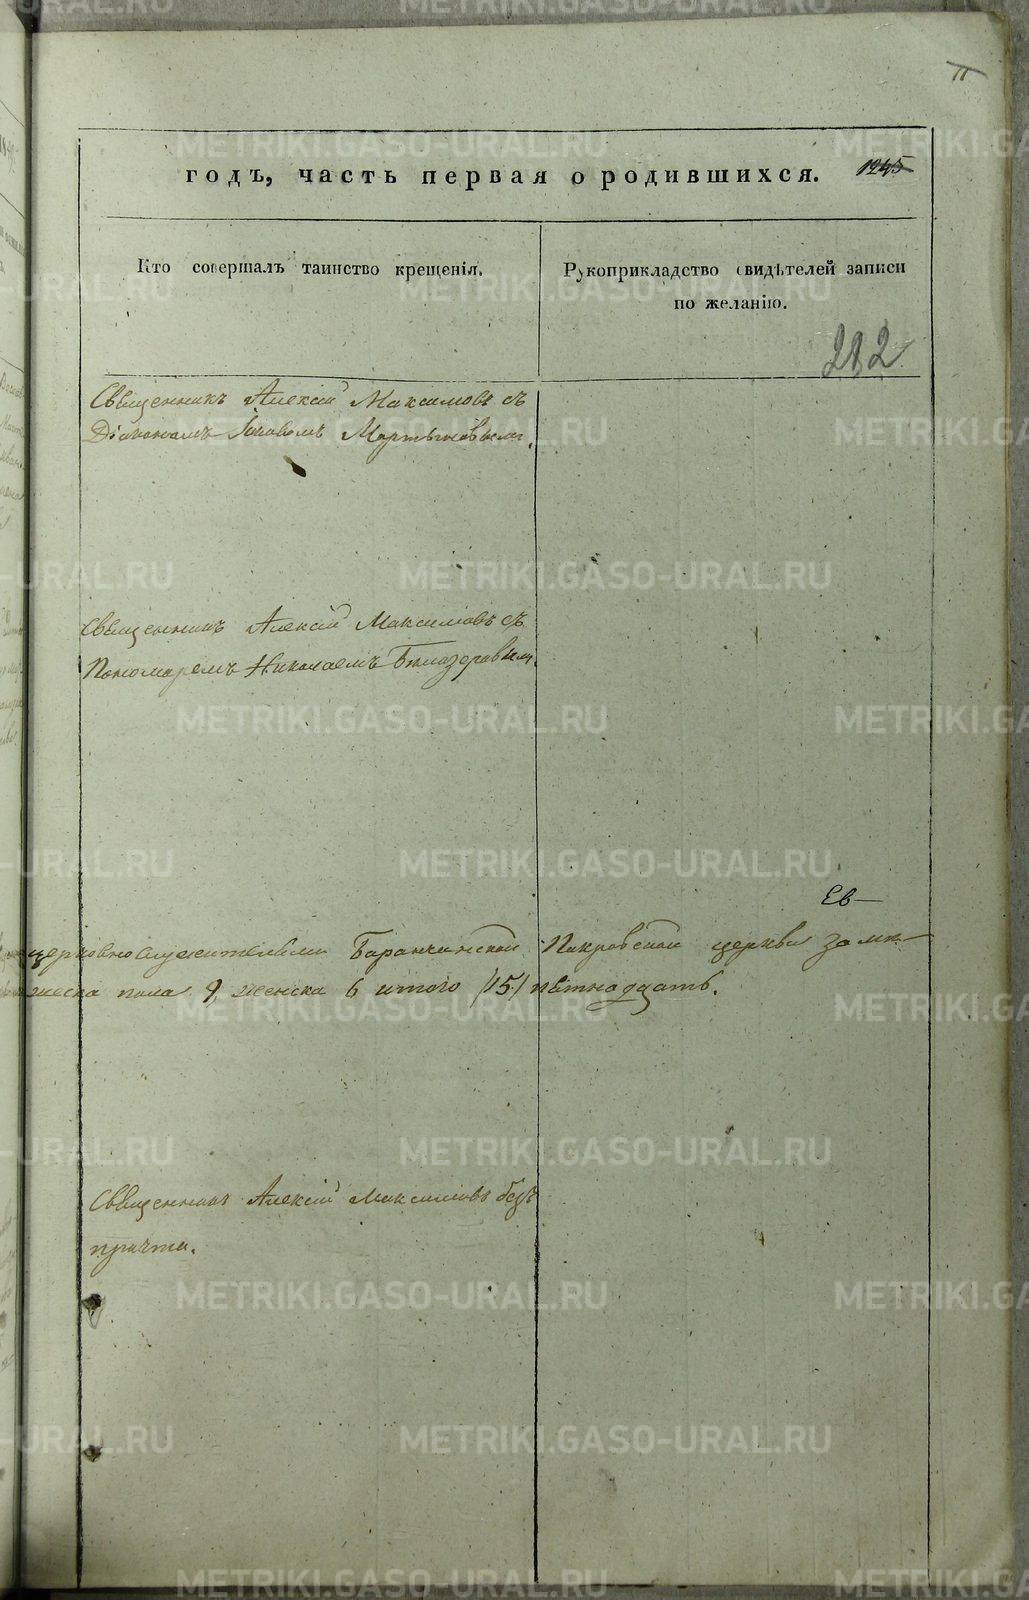 11
годъ, часть первая о родившихся. 1245
Кто совершалъ таинство крещенія.
Рукоприкладство свидѣтелей записи
по желанію.
212
Священникъ Алексій Максимовъ съ
Діакономъ Іаковомъ Мартыновымъ.
Священникъ Алексій Максимовъ съ
Пономаремъ Николаемъ Бѣлозеровымъ.
Ев-
церковнослужителями Баранчинской Покровской церкви за
жеска пола 9, женска 6 итого /15/ пѣтнадцать.
Священникъ Алексій Максимовъ безъ
причта.
METRIKI.GASO-URAL.RU